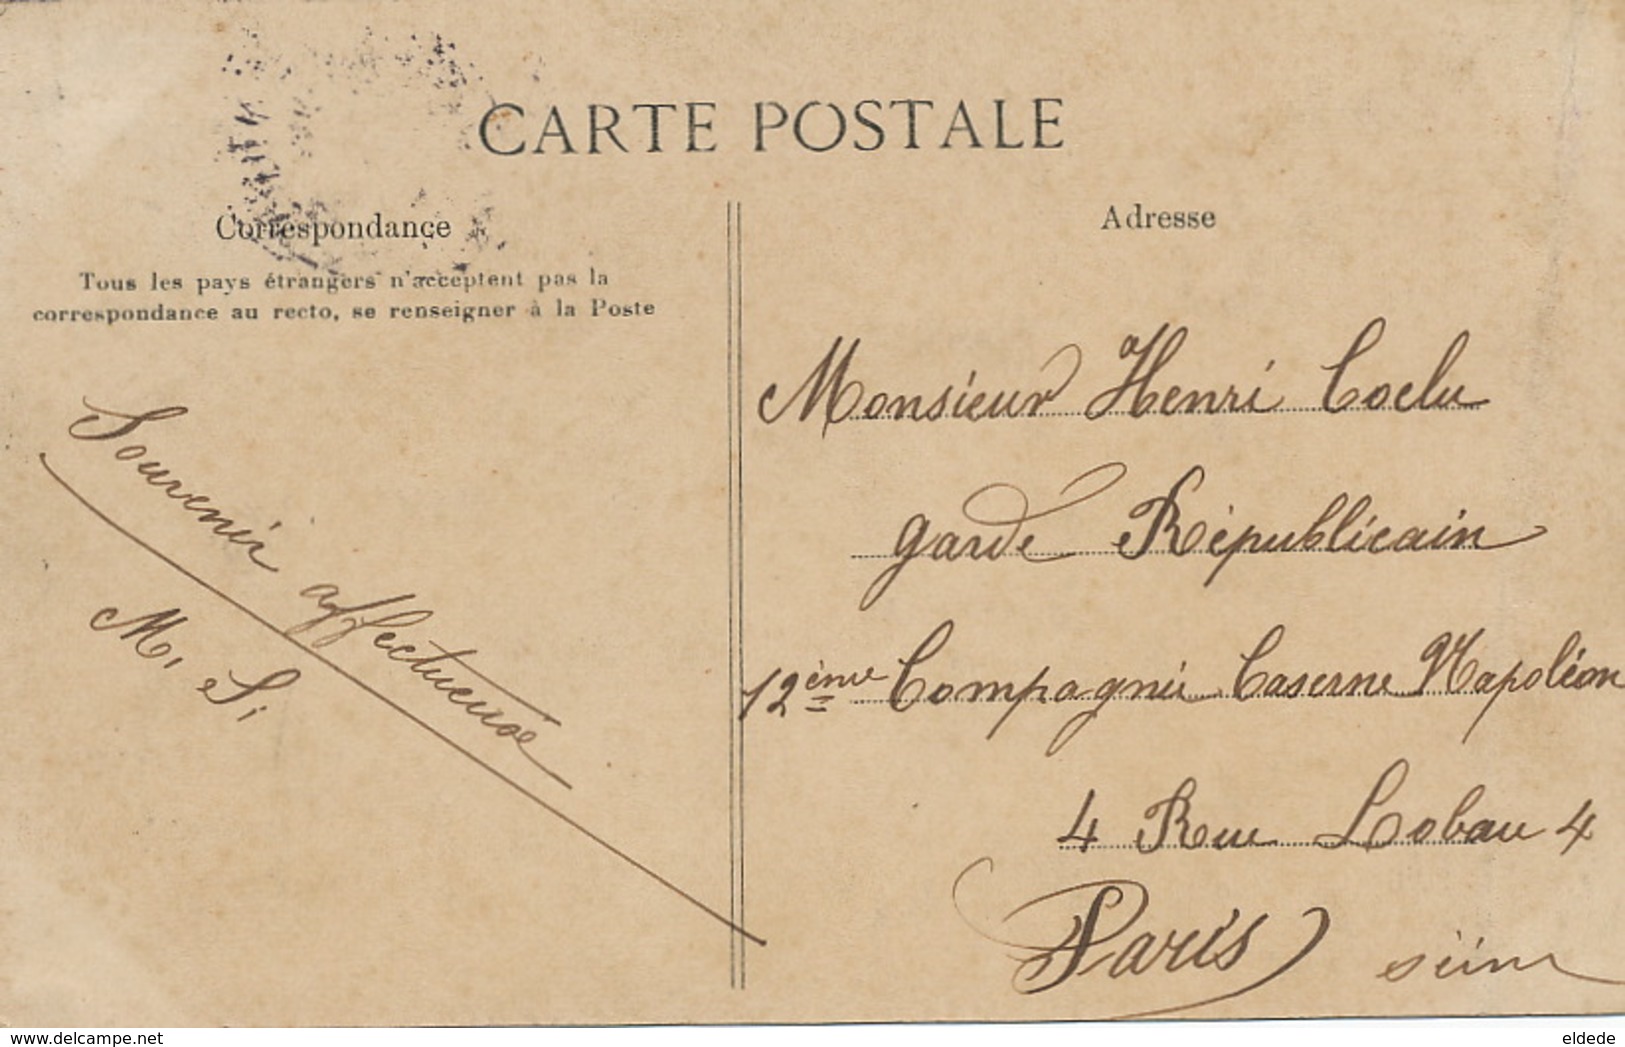 CARTE POSTALE
Correspondance
Tous les pays étrangers n'acceptent pas la
correspondance au recto, se renseigner à la Poste
Souvenir affectueuse
M. S.
Adresse
Monsieur Henri Coelu
garde Républicain
12ème Compagnie Caserne Napoléon
4 Rue Lobau 4
Paris Seine
www.delcampe.net
eldede